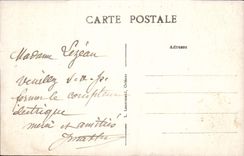 CARTE POSTALE
Adresse
Madame Lézeau
Veuillez s.v.p.
fermer le compteur
électrique
merci et amitiés